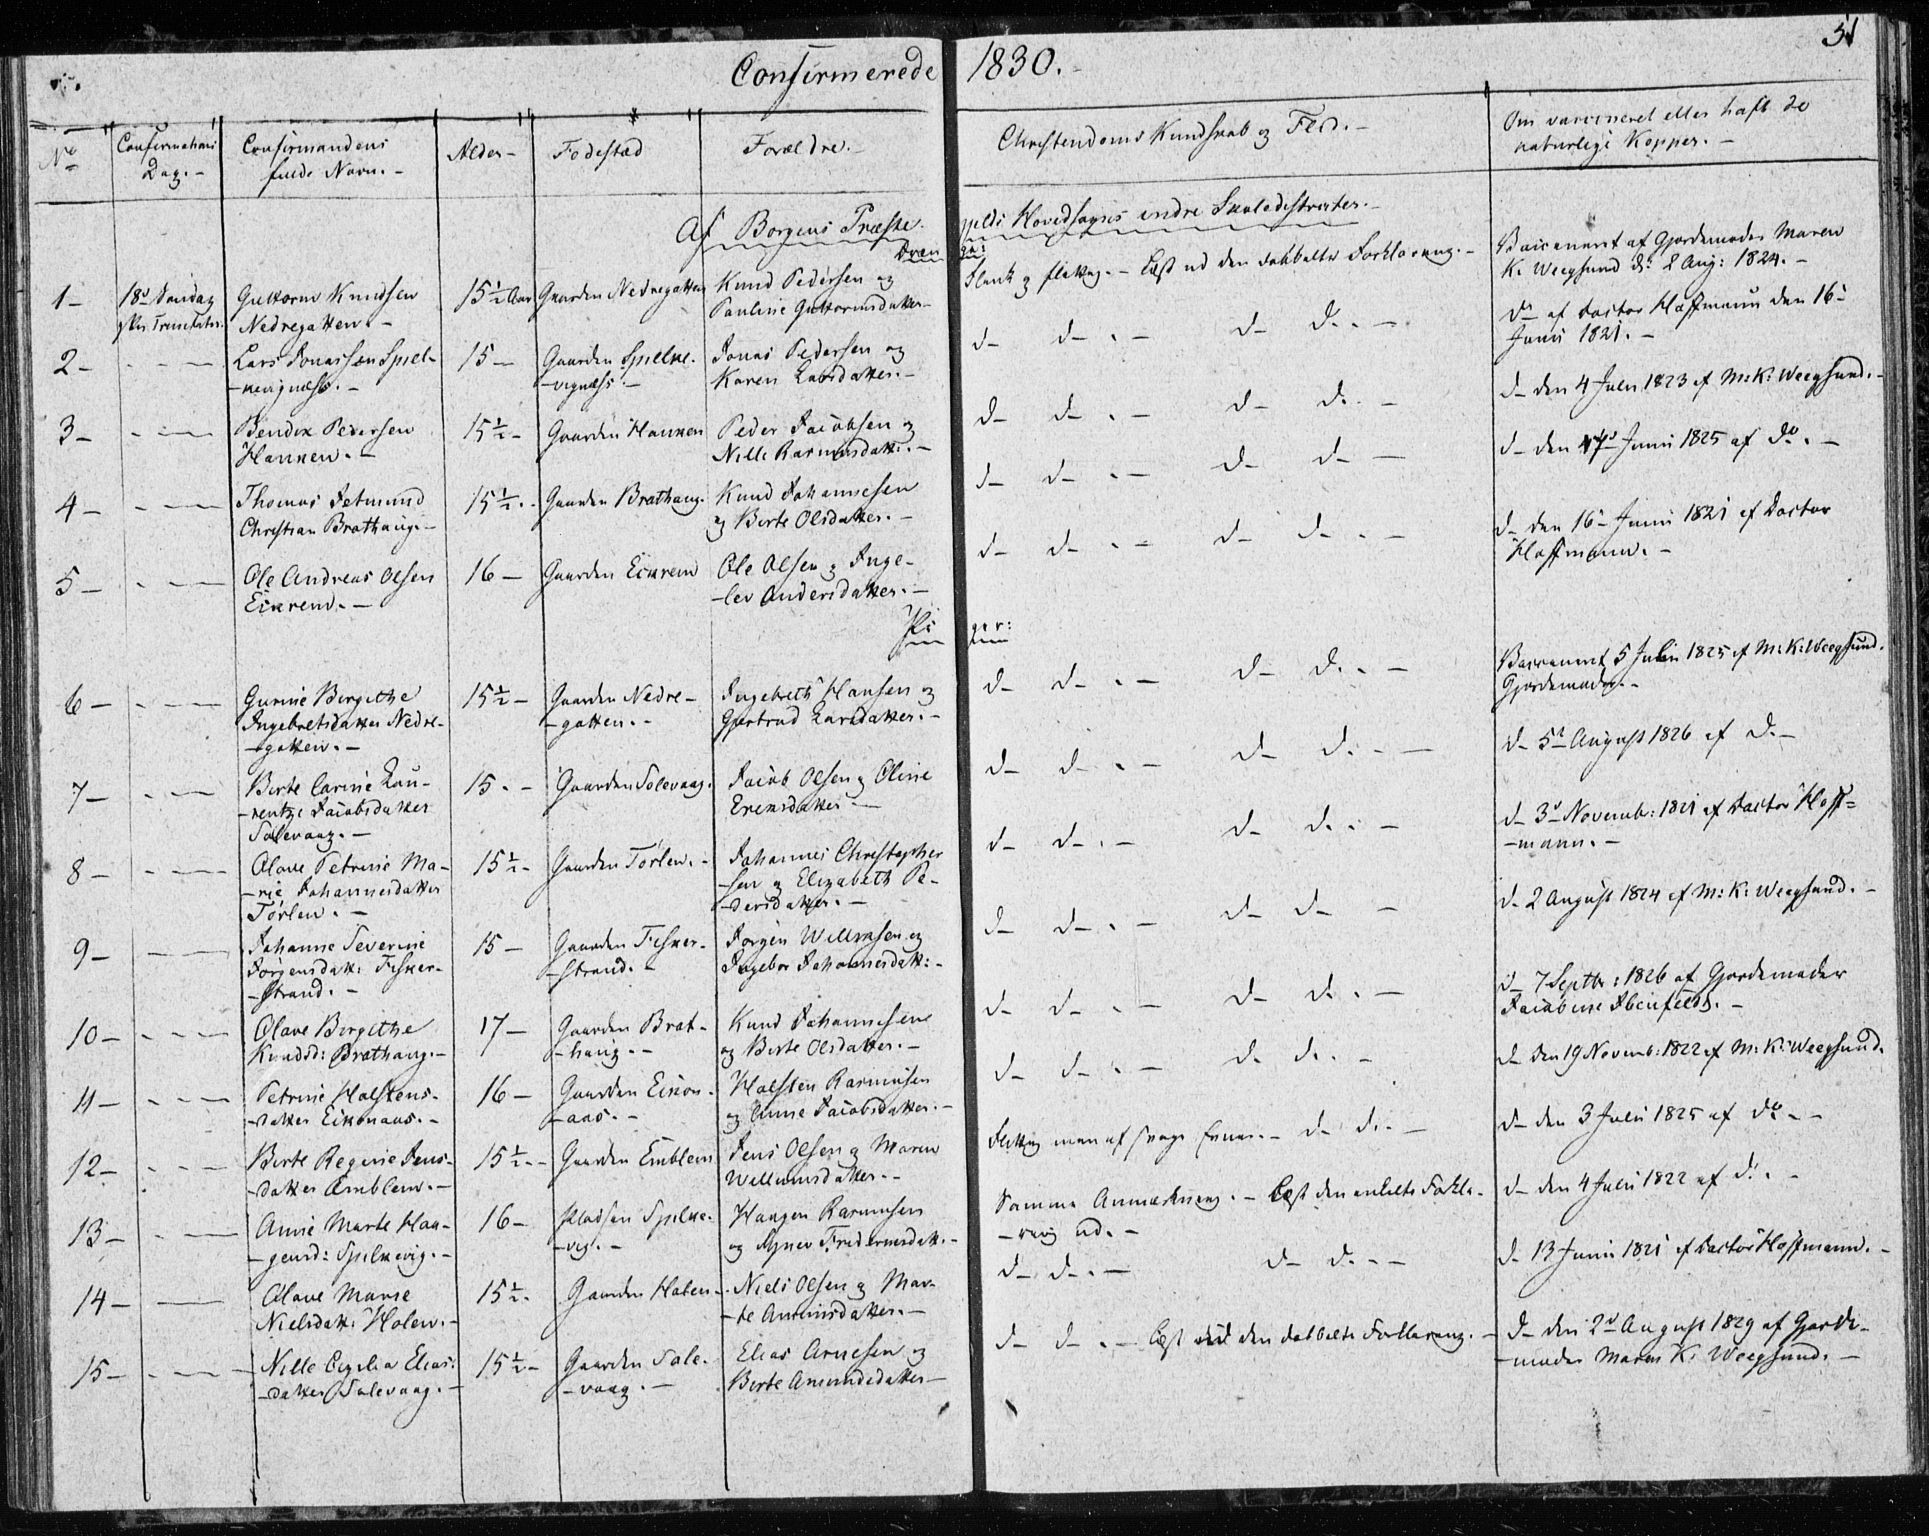 Confirmerede 1830.
51
No
Confirmations
Dag. -
Confirmandens
fulde Navn. -
Alder -
Fødestæd
Forældre. -
Christendoms Kundskab og Flid. -
Om vaccineret eller haft de
naturlige Kopper. -
Af Borgens Præste-
gjelds Hovedsogns indre Skoledistricter. -
Dren
ge:
1 -
18d Søndag
efter Trinitatis.
Guttorm Knudsen
Nedregatten. -
15½ Aar
Gaarden Nedregatten
Knud Pedersen og
Pauline Guttormsdatter -
Flink og flittig. - Læst ud den dobbelte Forklaring. -
Vaccineret af Gjordemoder Maren
K. Weegsund d: 2 Aug: 1824. -
2 -
Lars Jonassen Spiel-
-kevignæss. -
15 -
Gaarden Spilke-
-vignæss. -
Jonas Pedersen og
Karen Larsdatter. -
d - d - . - d - d . -
do af Doctor Hoffmann den 16d
Junii 1821. -
3 -
Bendix Pedersen
Hanken. -
15½ -
Gaarden Hanken
Peder Jacobsen og
Nille Rasmusdatt:. -
d - d - . - d - d . -
d - den 4 Julii 1823 af M: K: Weegsund. -
4 -
Thomas Fetmund
Christian Brathaug. -
15½ -
Gaarden Brathaug.
Knud Johannesen
og Berte Olsdatter. -
d - d - . - d - d -
d - den 17d Junii 1825 af do. -
5 -
Ole Andreas Olsen
Eikrem. -
16 -
Gaarden Eikrem
Ole Olsen og Inge-
-lev Andersdatter. -
d - d - . - d - d - . -
d - den 16d Junii 1821 af Doctor
Hoffmann. -
Pi
ger:
6 -
Gurine Birgithe
Ingebretsdatter Nedre-
-gatten. -
15½ -
Gaarden Nedre-
-gatten. -
Ingebreth Hansen og
Gjertrud Larsdatter. -
d - d - . - d - d . -
Vaccineret 5 Julii 1825 af M: K: Weegsund.
Gjordemoder. -
7 -
Berte Carine Lau-
-rentze Jacobsdatter
Solevaag. -
15 . -
Gaarden Solevaag.
Jacob Olsen og Oline
Eriksdatter -
d - d - . - d - d . -
d - 5d August 1826 af d. -
8 -
Olave Petrine Ma-
-rie Johannesdatter
Tørlen. -
15½ -
Gaarden Tørlen. -
Johannes Christopher
-sen og Elizabeth Pe-
-dersdatter. -
d - d - . - d - d . -
d - 3d Novemb: 1821 af Doctor Hoff-
-mann. -
9 -
Johanne Severine
Jørgensdatt: Fisker-
-strand. -
15 -
Gaarden Fisker-
-strand. -
Jørgen Willumsen og
Ingebor Johannesdatt: -
d - d - . - d - d -
d - 2 August 1824 af M: K: Weegsund. -
10 -
Olave Birgithe
Knudsd: Brathaug. -
17 -
Gaarden Brat-
-haug. -
Knud Johannesen
og Berte Olsdatter. -
d - d - . - d - d . -
d - 7 Septbr: 1826 af Gjordemoder
Jacobine Ibenfeldt. -
11 -
Petrine Holstens-
-datter Eikonaas. -
16 -
Gaarden Eikon-
-aas. -
Holsten Rasmusen
og Anne Jacobsdatter. -
d - d - . - d - d . -
d - den 19 Novemb: 1822 af M: K: Weegsund.
12 -
Berte Regine Jens-
-datter Emblem. -
15½ -
Gaarden Emblem
Jens Olsen og Maren
Willumsdatter. -
Flittig men af svage Evner. - d - d . -
d - den 3 Julii 1825 af do. -
13 -
Anne Marte Haa-
-gensd: Spilkevig. -
16 -
Pladsen Spilke-
-vig. -
Haagen Rasmusen
og Synev Frideriksdatt. -
Samme Anmærkning. - Læst den enkelte Forkla-
-ring ud. -
d - den 4 Julii 1822 af d. -
14 -
Olave Marie
Nielsdatt: Holen. -
15½ -
Gaarden Holen -
Niels Olsen og Mar-
-te Amundsdatter. -
d - d - . - d - d . -
d - 13 Junii 1821 af Doctor Hoffmann. -
15 -
Nille Cecilia Elias-
-datter Solevaag. -
15½ -
Gaarden Sole-
-vaag. -
Elias Arnesen og
Berte Amundsdatter -
d - d - . - Læst ud den dobbelte Forklaring. -
d - den 2d August 1829 af Gjorde-
-moder Maren K: Weegsund. -